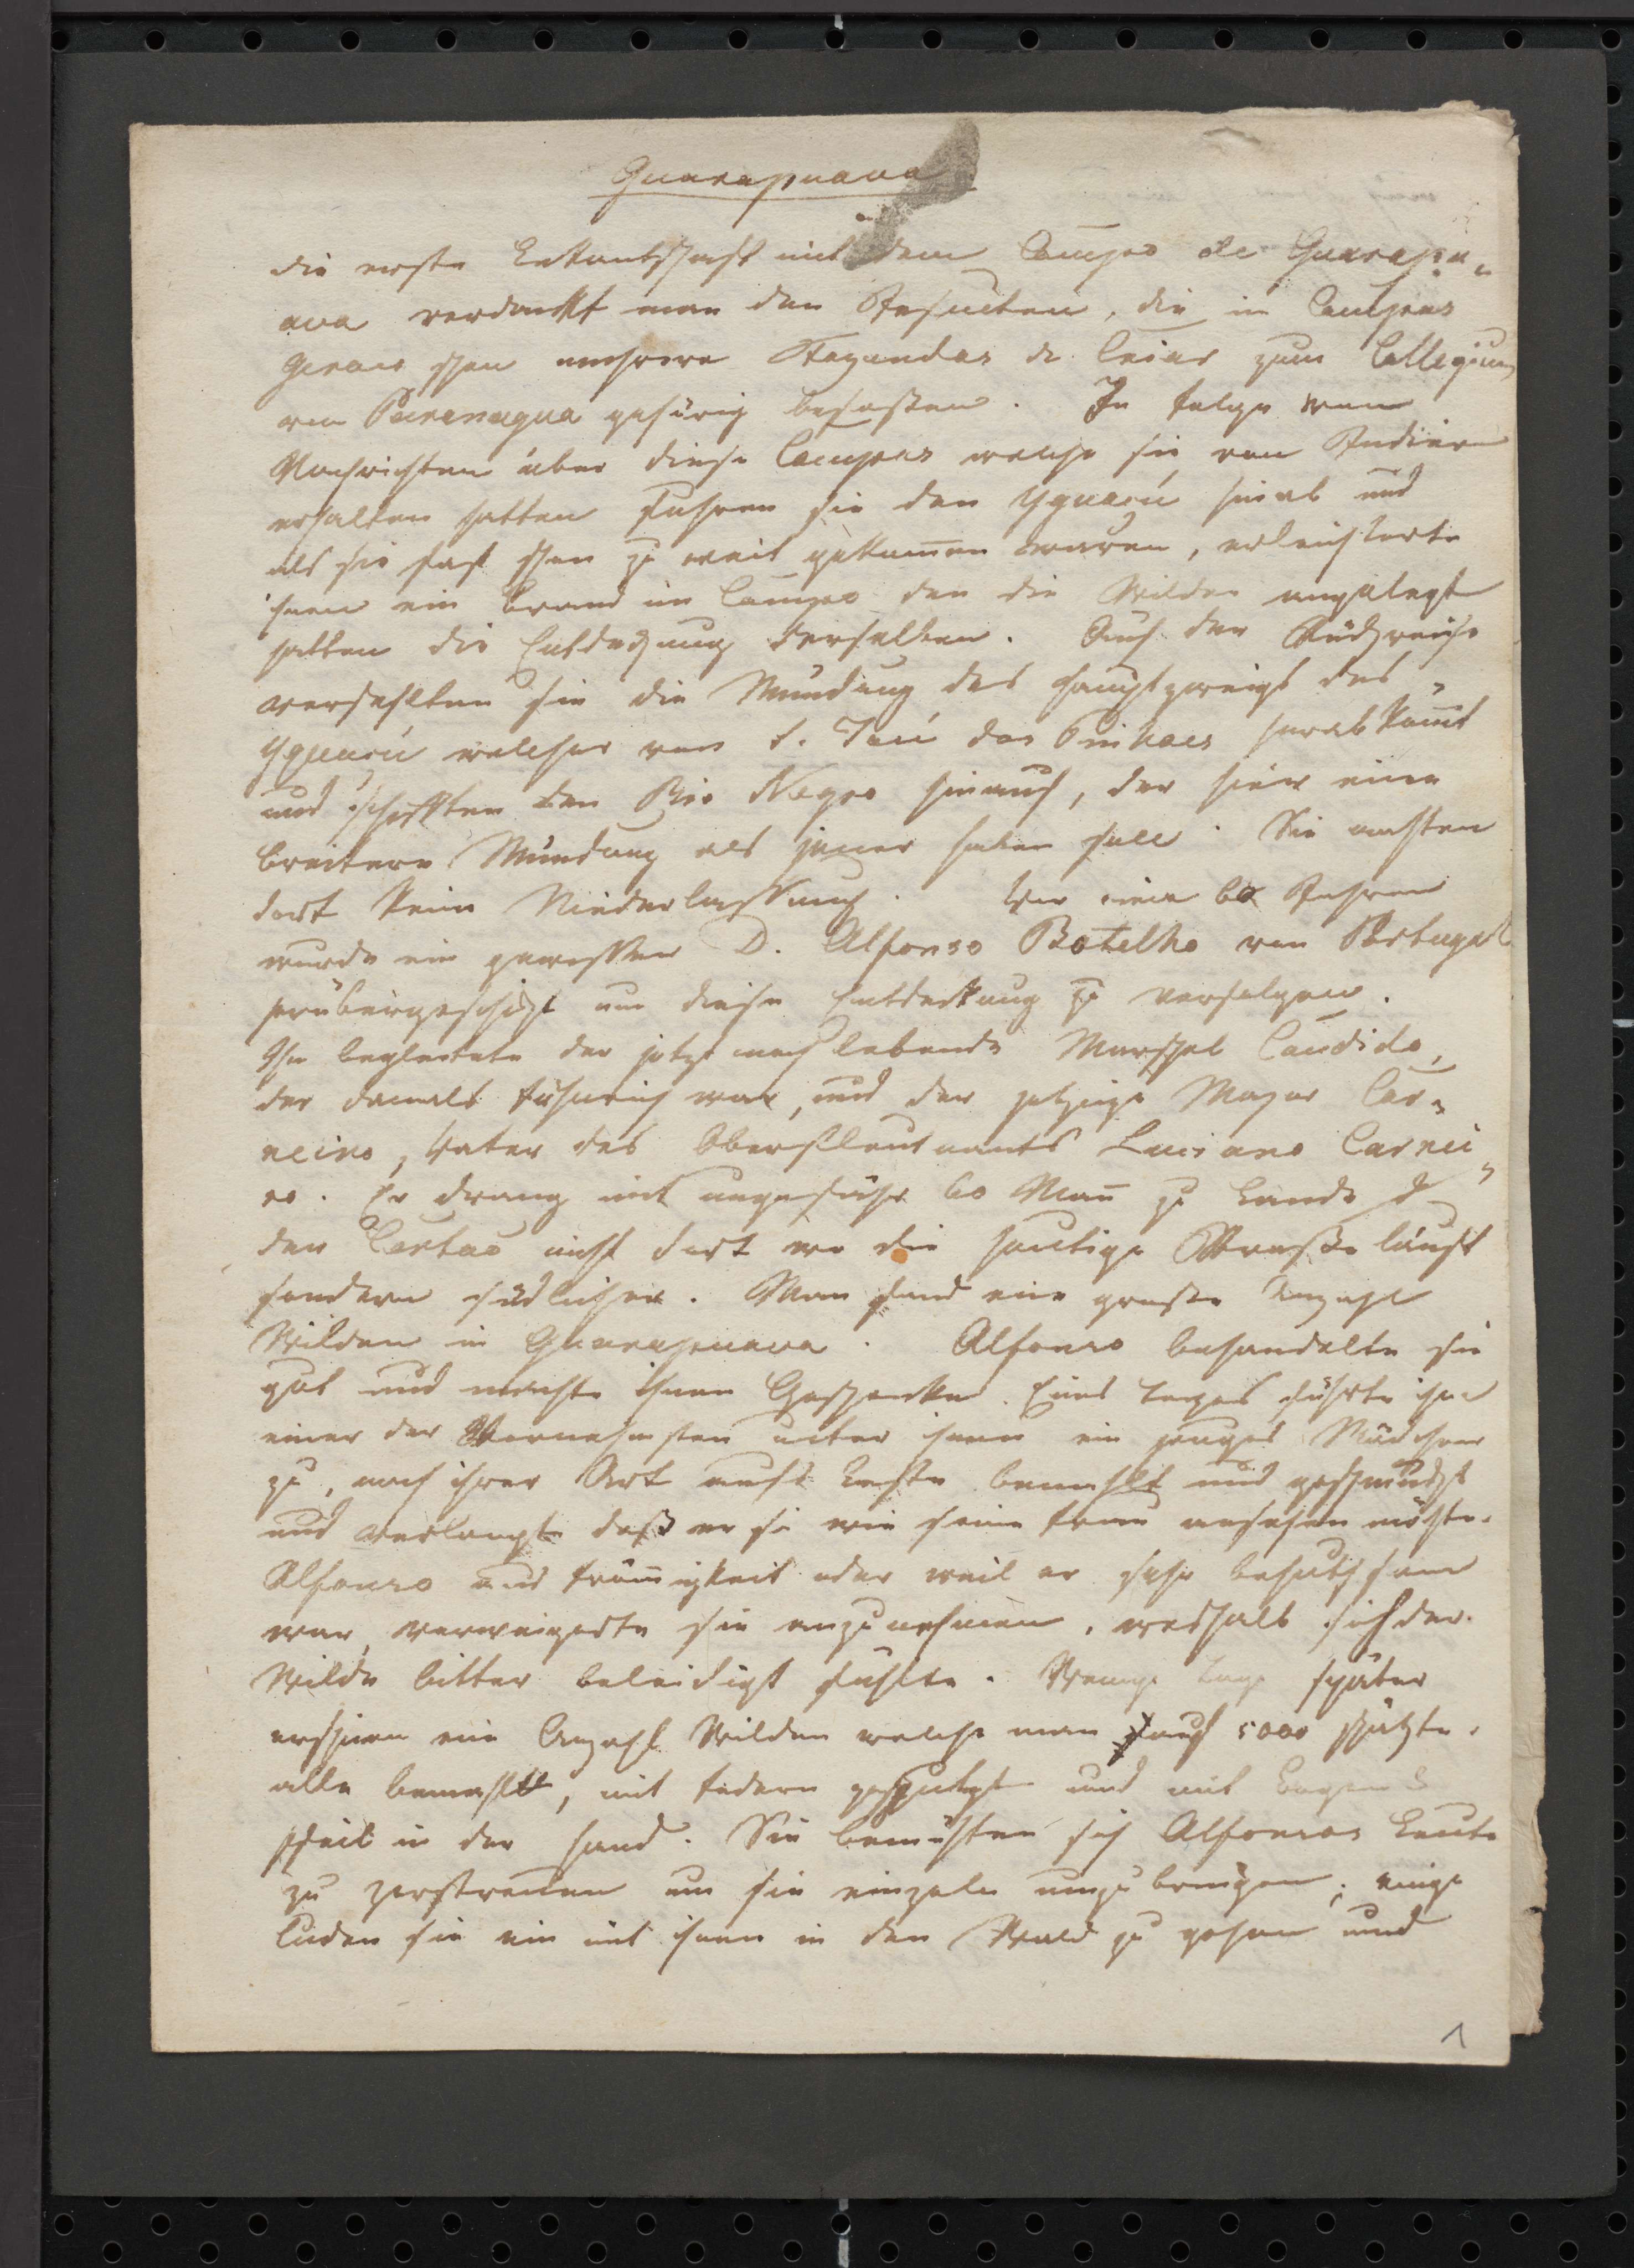 Guarapuava
die erste Bekantschaft mit dem Campo de Guarapu-
ava verdankt man den Jesuiten, die in Campos
Geraes schon mehrere Fazendas de Criar zum Collegium
von Paranagua gehörig besaßen. In folge von
Nachrichten über diese Campos welche sie von Indiern
erhalten hatten fuhren sie den Yguacú hinab und
als sie fast schon zu weit gekommen waren, erleichterte
ihnen ein Brand im Campo den die Wilden angelegt
hatten die Entdeckung derselben. Auf der Rückreise
verfehlten sie die Mündung des Hauptzweigs des
Yguacú welcher von S. José dos Pinhaes herabkom̄t
und schifften den Rio Negro hinauf, der hier eine
breitere Mündung als jener haben soll. Sie machten
dort keine Niederlassung. Vor einen 60 Jahren
wurde ein gewisser D. Alfonso Botelho von Portugal
herübergeschickt um diese Entdeckung zu verfolgen.
Ihn begleitete der jetzt noch lebende Marschal Candido,
der damals Fähnrich war, und der jetzige Major Car-
neiro, Vater des Oberstleutnants Luciano Carnei-
ro. Er drang mit ungefähr 60 Man̄ zu Lande d
den Certao nicht dort wo die heutige Straße läuft
sondern südlicher. Man fand eine große Anzahl
Wilden in Guarapuava. Alfonso behandelte sie
gut und machte ihnen Geschenke. Eines Tages führte ihm
einer der Vornehmsten unter ihnen ein junges Mädchen
zu, nach ihrer Art aufs beste bemahlt und geschmückt
und verlangte daß er sie wie seine Frau ansehen möchte.
Alfonso aus From̄igkeit oder weil er sehr behutsam
war, verweigerte sie anzunehmen, weshalb sich der
Wilde bitter beleidigt fühlte. Wenige Tage später
erschien eine Anzahl Wilden welche man auf 5000 schätzte,
alle bemahlt, mit Federn geputzt und mit Bogen &
Pfeil in der Hand. Sie bemühten sich Alfonsos Leute
zu zerstreuen um sie einzeln umzubringen; einige
luden sie ein mit ihnen in den Wald zu gehen und
1